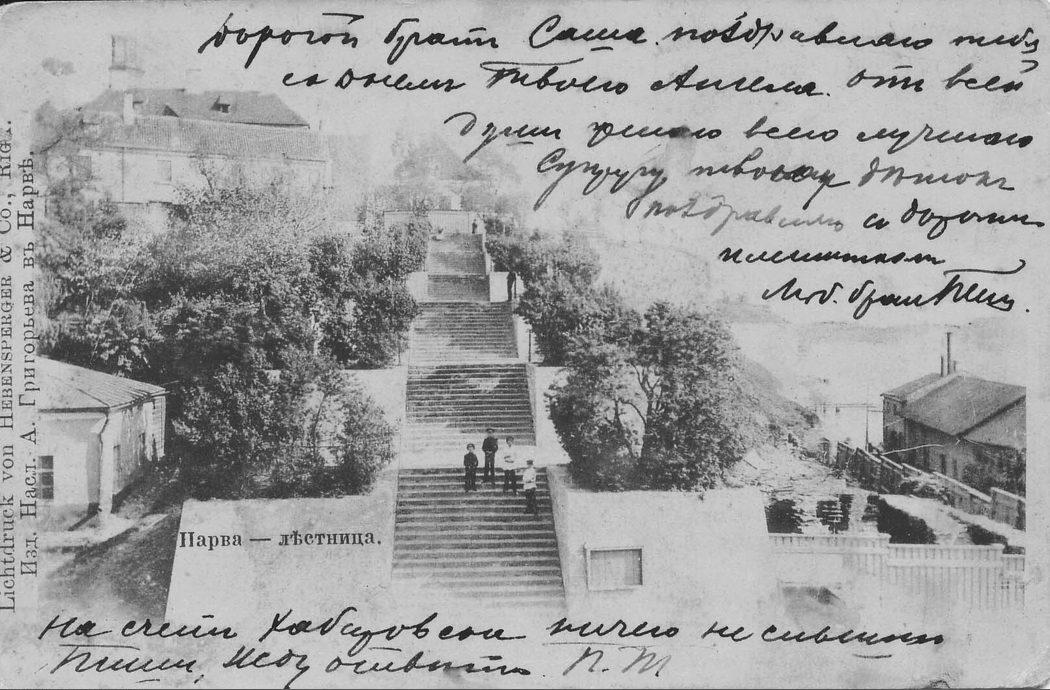 Дорогой братъ Саша. поздравляю тебя
съ днемъ Твоего Ангела. отъ всей
души желаю всего лучшаго
Супругу твою и дѣтокъ
поздравляю съ дорогим
имянинникомъ
Люб. братъ Петя.
Lichtdruck von Hebensperger & Co., Riga.
Изд. Насл. А. Григорьева въ Нарвѣ.
Нарва — лѣстница.
На счетъ Хабаровска ничего не слышно
Пиши, Жду отвѣта. П. Т